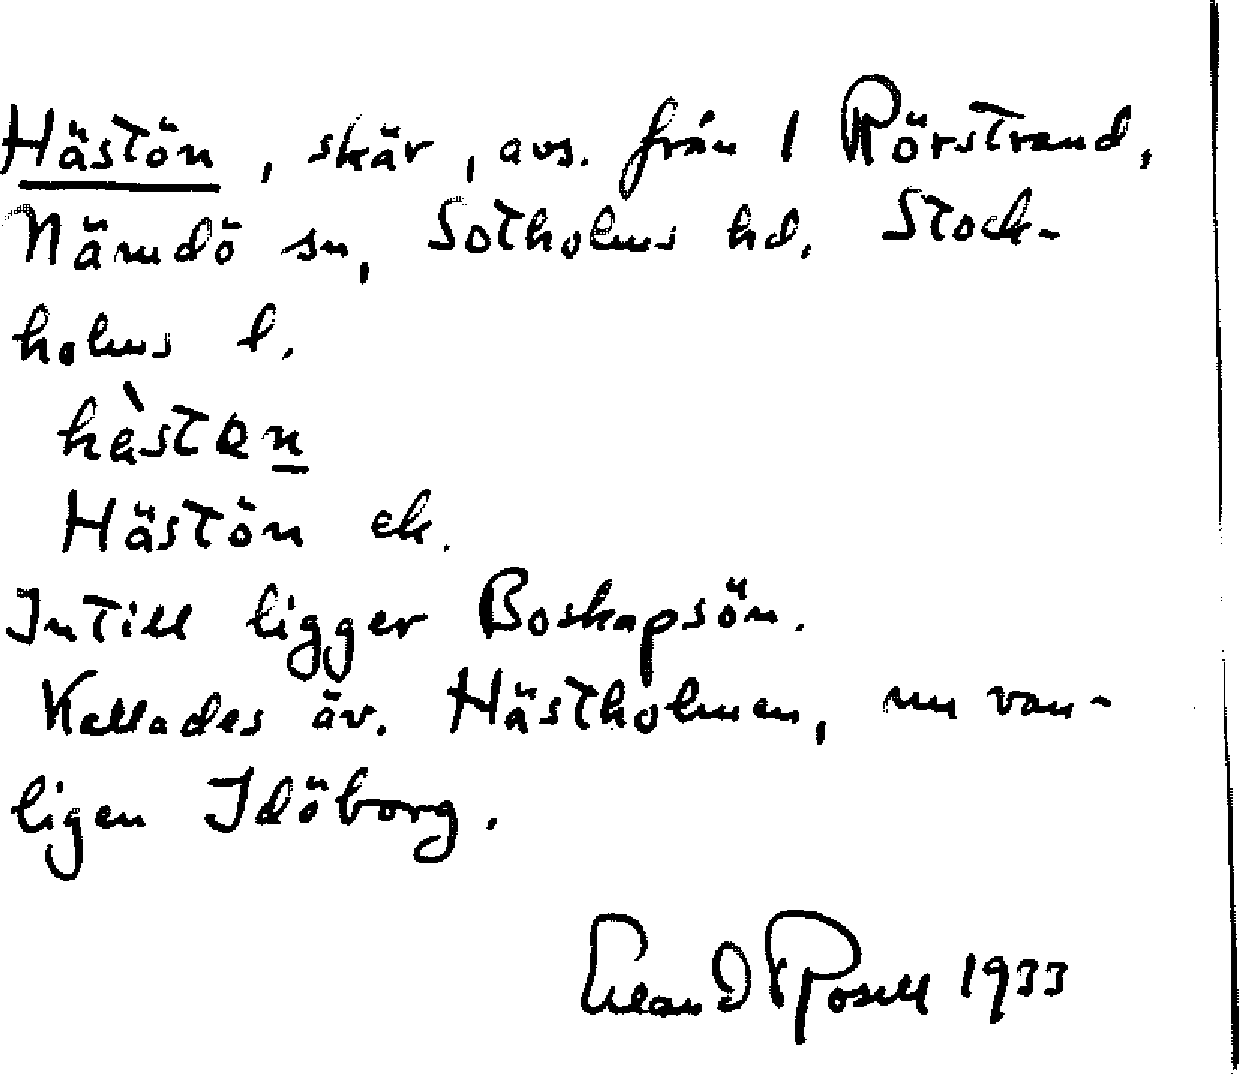 Hästön, skär, avs. från 1 Rörstrand,
Nämdö sn, Sotholms hd, Stock-
holms l.
Hästön ek.
Intill ligger Boskapsön.
Kallades äv. Hästholmen, nu van-
ligen Idöborg.
Rosell 1933